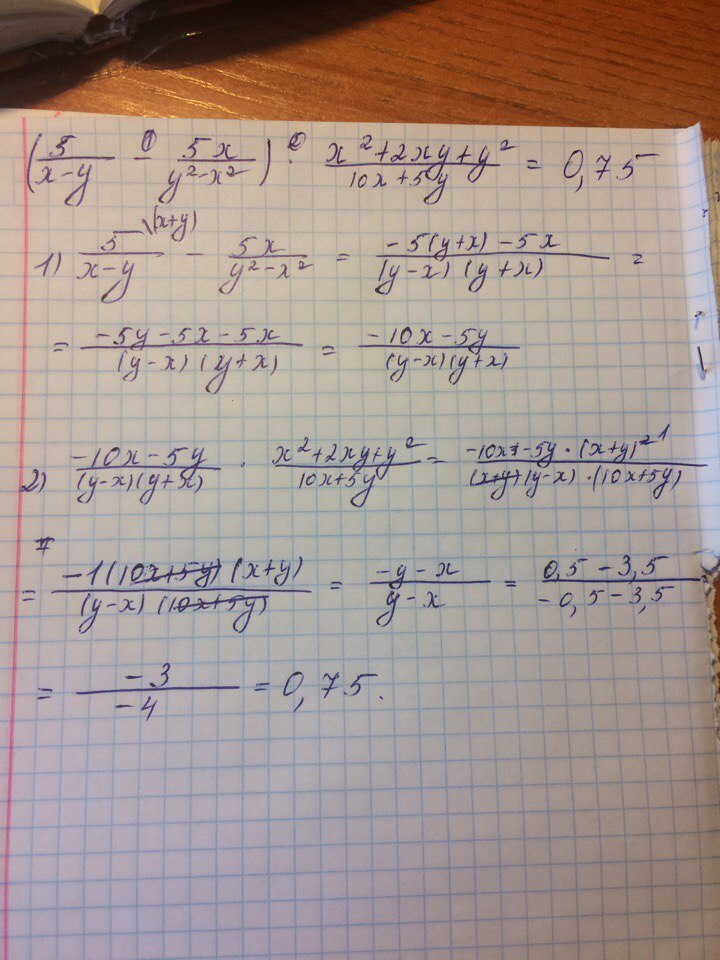 (5/(x-y) - 5x/(y²-x²)) · (x²+2xy+y²)/(10x+5y) = 0,75
1) 5\(x+y)/(x-y) - 5x/(y²-x²) = (-5(y+x)-5x)/((y-x)(y+x)) =
= (-5y-5x-5x)/((y-x)(y+x)) = (-10x-5y)/((y-x)(y+x))
2) (-10x-5y)/((y-x)(y+x)) · (x²+2xy+y²)/(10x+5y) = (-10x-5y·(x+y)²¹)/((x+y)(y-x)·(10x+5y))
= (-1(10x+5y)(x+y))/((y-x)(10x+5y)) = (-y-x)/(y-x) = (0,5-3,5)/(-0,5-3,5)
= -3/-4 = 0,75.